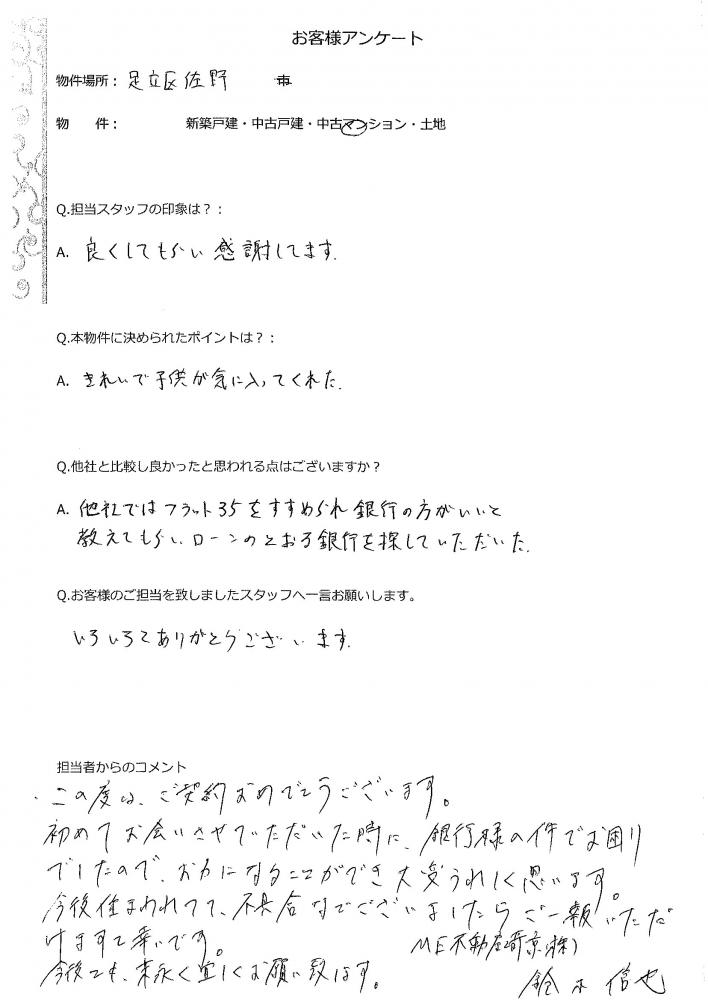 お客様アンケート
物件場所： 足立区佐野 市
物　　件： 新築戸建・中古戸建・中古マンション・土地
Q.担当スタッフの印象は？：
A. 良くしてもらい感謝してます.
Q.本物件に決められたポイントは？：
A. きれいで子供が気に入ってくれた.
Q.他社と比較し良かったと思われる点はございますか？
A. 他社ではフラット35をすすめられ銀行の方がいいと
教えてもらいローンのとおる銀行を探していただいた.
Q.お客様のご担当を致しましたスタッフへ一言お願いします。
いろいろとありがとうございます.
担当者からのコメント
・この度は、ご契約おめでとうございます。
初めてお会いさせていただいた時に、銀行様の件でお困り
でしたので、お力になることができ大変うれしく思います。
今後住まわれてて、不具合などございましたらご一報いただ
けますと幸いです。
ME不動産埼京(株)
今後とも、末永く宜しくお願い致します。
鈴木 信也